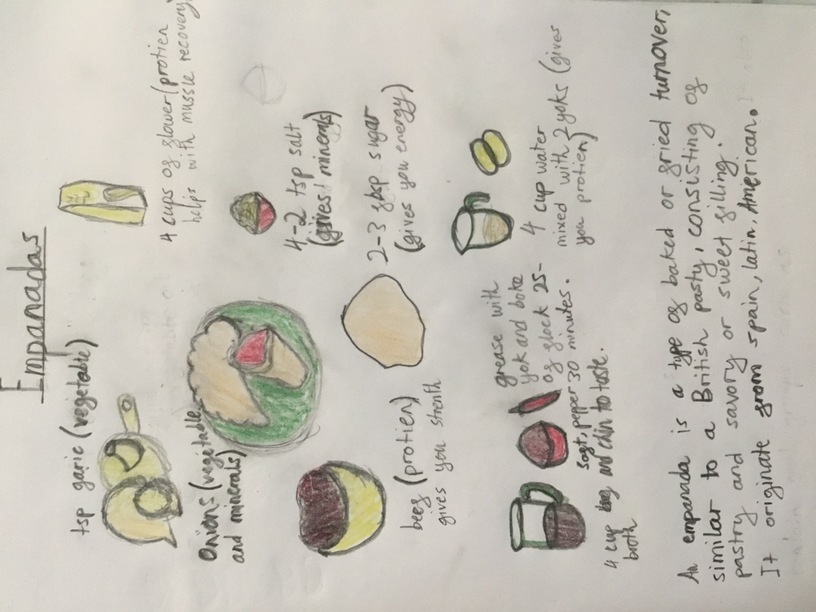 Empanadas
tsp garic (vegetable)
4 cups of flower (protien
helps with mussle recovery
Onions (vegetable
and minerals)
4-2 tsp salt
(gives minerals)
2-3 tbsp sugar
(gives you energy)
beef (protien)
gives you strenth
4 cup water
mixed with 2 yoks (gives
you protien)
grease with
yok and bake
of 25-
pepper 30 minutes.
4 cup and to taste.
broth
An empanada is a type of baked or fried turnover,
similar to a British pasty, consisting of
pastry and savory or sweet filling.
It originate from spain, latin, American.